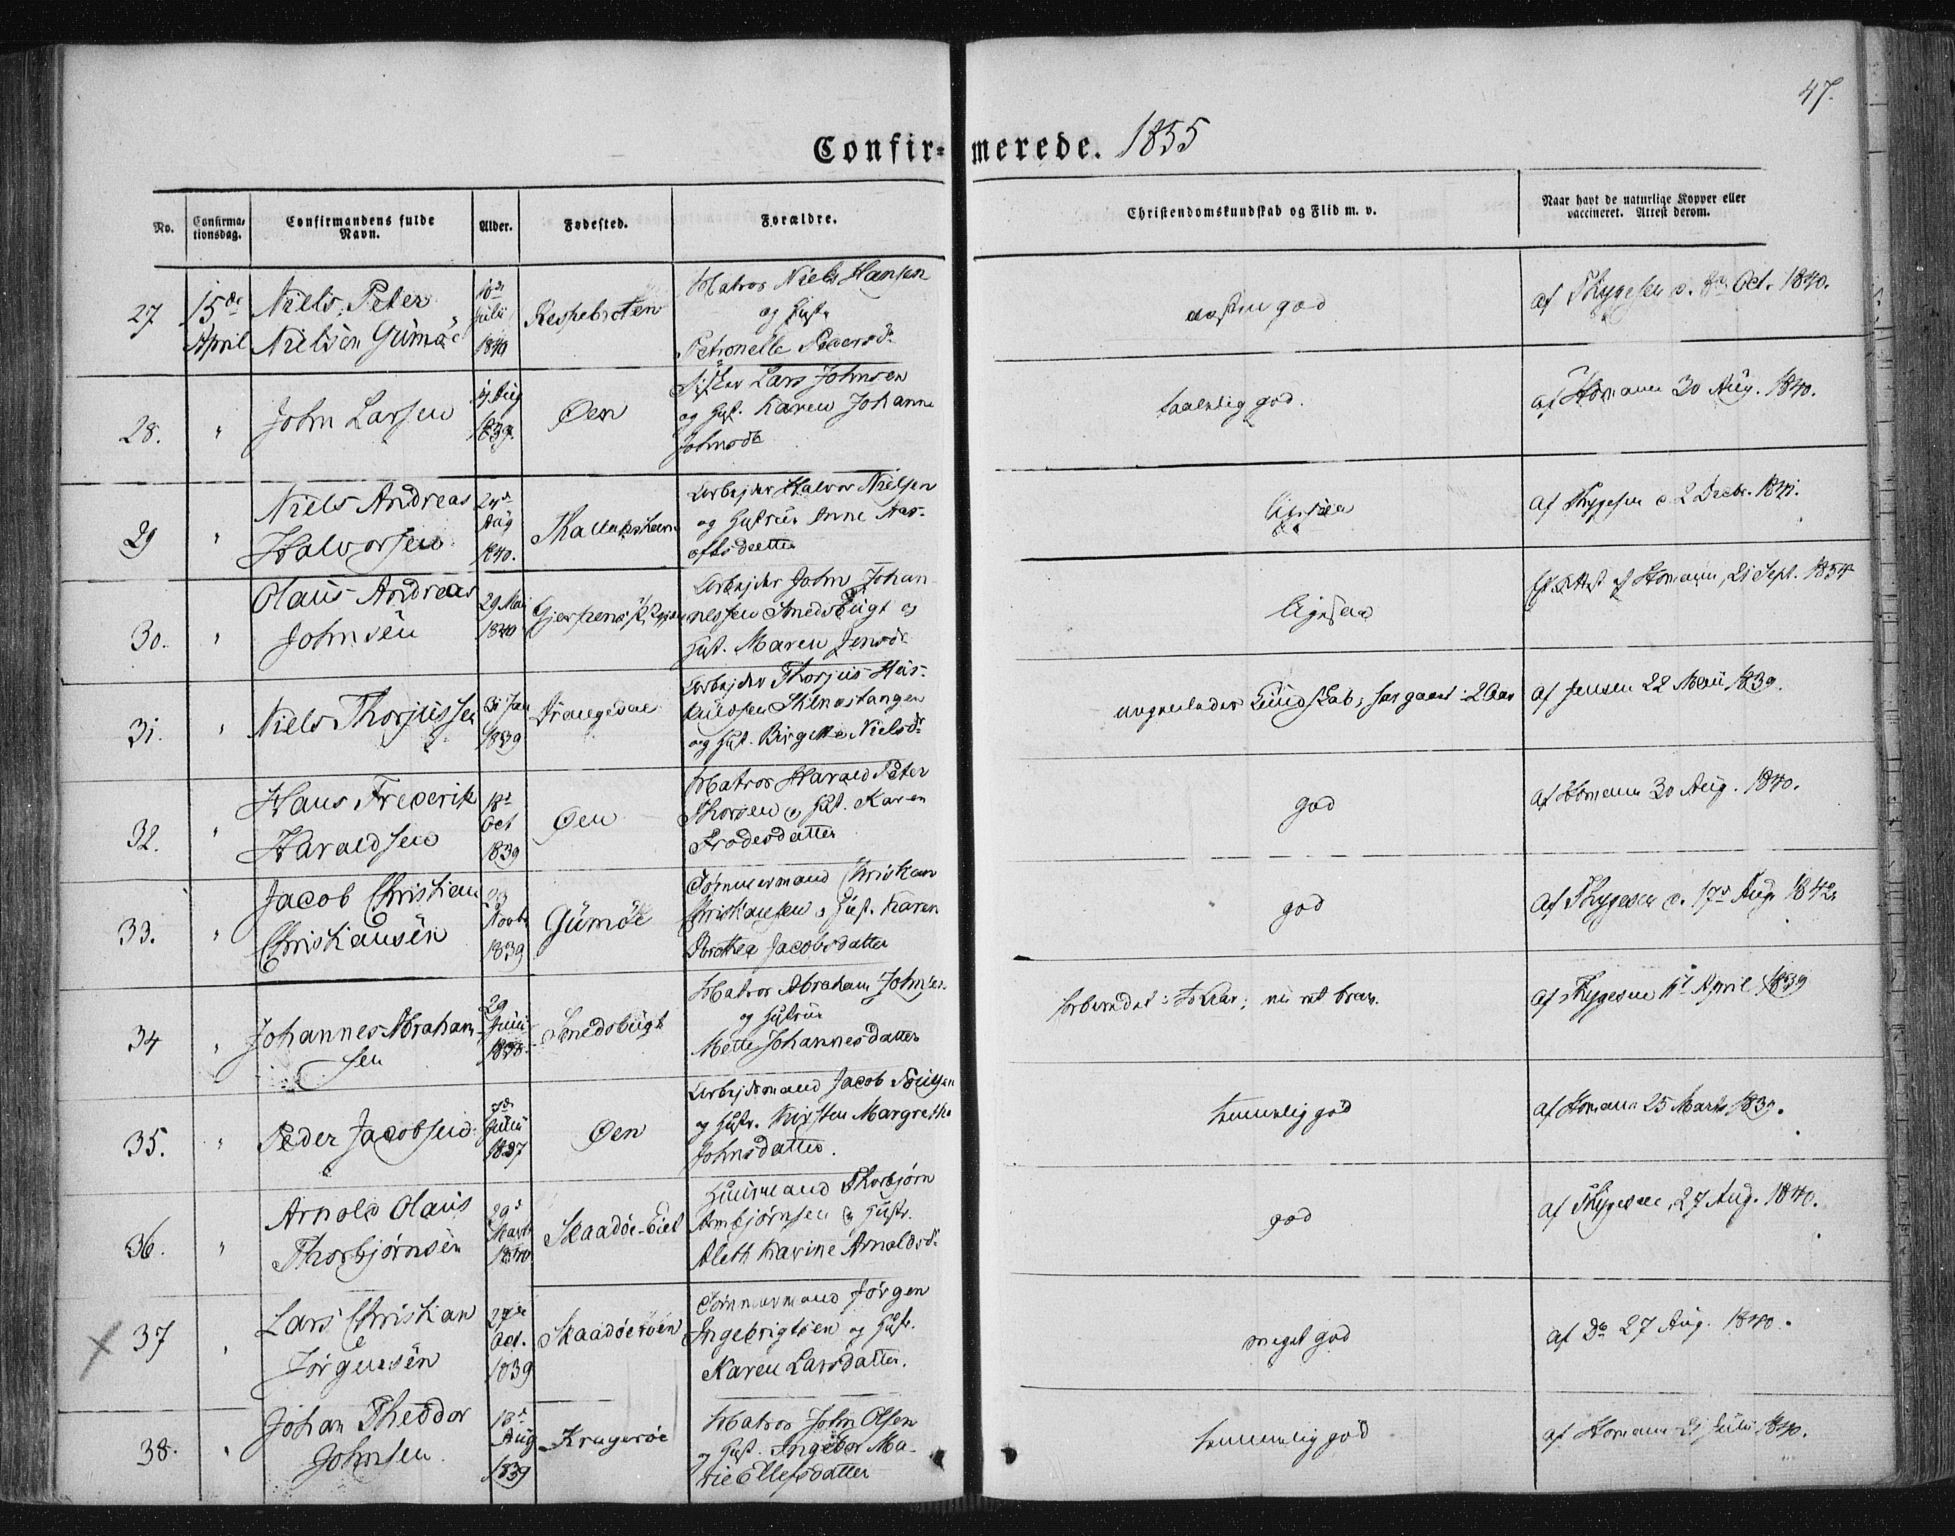 47.
Confirmerede. 1855
No. Confirmationsdag. Confirmandens fulde Navn. Alder. Fødested. Forældre. Christendomskundskab og Flid m. v. Naar havt de naturlige Kopper eller vaccineret. Attest derom.
27 15de April
Niels Peter
Nielsen Gumøe
Juli
1840
Matros Niels Hansen
og Hustr.
Petronelle
god
af Thygesen d. 8de Oct. 1840.
28. "
John Larsen
Aug
1839.
Øen
Lars Johnsen
og Hust. Karen Johanne
Johnsdt.
taalelig god.
af Homann 30 Aug. 1840.
29 "
Niels Andreas
Halvorsen
24de
Aug
1840.
Arbejder Halvor Nielsen
og Hustrue Anne
ligesaa
af Thygesen d 2 Decbr. 1841.
30. "
Olaus Andreas
Johnsen
29 Mai
1840
Arbejder John Johan
nessen Smedsbugt og
Hust. Maren Jensdr.
ligesaa
Attest af Homann, 21 Sept. 1854
31. "
Niels Thorjussen
31 Jan
1839
Drangedal
Arbejder Thorjus
Stenestangen
og Hust. Birgitte Nielsdr.
Kundskab; har gaaet i 2 Aar
af Jensen 22 Mai 1839.
32. "
Hans Frederik
Haraldsen
18d
Oct
1839
Øen
Matros Harald Peter
Thorsen og Hst. Karen
Frodesdatter
god
af Homann 30 Aug. 1840.
33. "
Jacob Christian
Christiansen
23
Novbr
1839
Gumøe
Tømmermand Christian
Christiansen og Hust. Karen
Dorthea Jacobsdatter
god
af Thygesen d. 17de Aug 1842
34 "
Johannes Abraham
sen
29
Smedsbugt
Matros Abraham Johnsen
og Hustrue
Mette Johannesdatter
forberedet i to Aar; nu ret brav.
af Thygesen April 1839
35. "
Peder Jacobsen
Juni
1837
Øen
Arbejdsmand Jacob
og Hustr. Kirsten Margrethe
Johnsdatter.
temmelig god
af Homann 25 Marts 1839.
36. "
Arnold Olaus
Thorbjørnsen
29d
Marts
1840
Huusmand Thorbjørn
Arnbjørnsen og Hustr.
Aleth Karine Arnoldsdr.
god
af Thygesen, 27 Aug. 1840.
37 "
Lars Christian
Jørgensen
27de
Oct.
1839
Skaadøeroen
Tømmermand Jørgen
Ingebrigtsen og Hustr.
Karen Larsdatter.
meget god
af Do 27 Aug. 1840.
38. "
Johan Theodor
Johnsen
18d
Aug
1839
Kragerøe
Matros John Olsen
og Hust. Ingebor Ma-
rie Ellefsdatter
temmelig god
af Homann 21 Juli 1840.